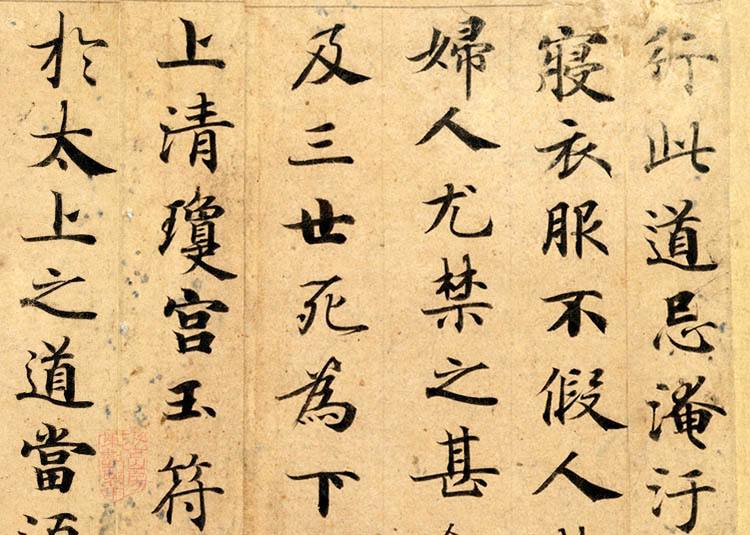 行此道忌淹汙
寢衣服不假人
婦人尤禁之甚
及三世死為下
上清瓊宮玉符
於太上之道當